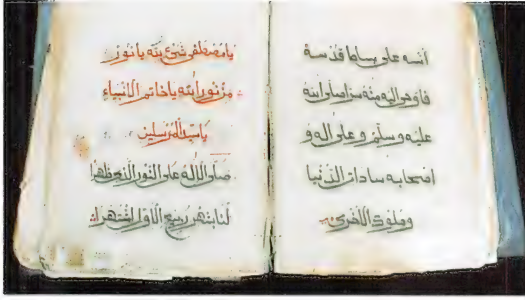 انسه على بساط قدسه
فاوحى اليه صلى الله
عليه وسلم وعلى اله و
اصحابه سادات الدنيا
وملوك الاخرى
يا مصطفى شئ لله يا نور
من نور الله يا خاتم الانبياء
يا سيد المرسلين
صلى الاله على النور الذي ظهرا
لنا بشهر ربيع الاول اشتهرا